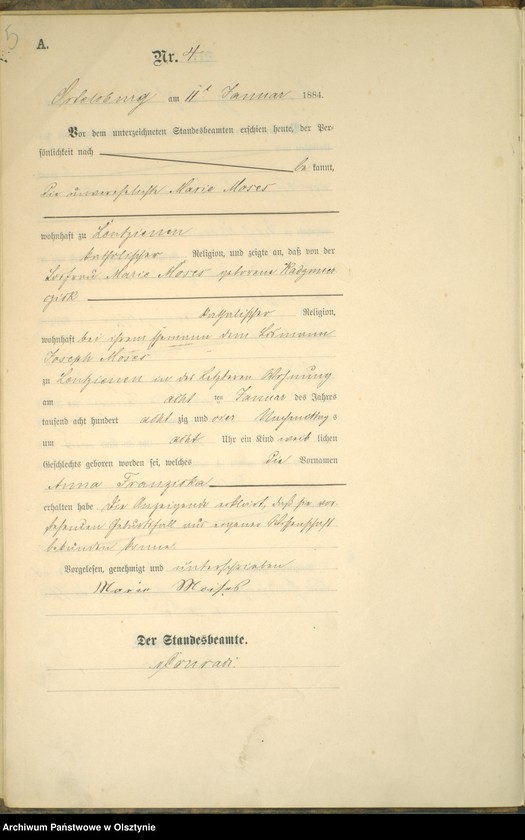 A.
Nr. 4
Ortelsburg am 11t Januar 1884.
Vor dem unterzeichneten Standesbeamten erschien heute, der Per-
sönlichkeit nach
be kannt,
die unverehelichte Marie Moses
wohnhaft zu Lentzienen
katholischer Religion, und zeigte an, daß von der
Losfrau Marie Moses geborene
katholischer Religion,
wohnhaft bei ihrem Ehemann dem Losmann
Joseph Moses
zu Lentzienen in der Letzteren Wohnung
am acht ten Januar des Jahres
tausend acht hundert acht zig und vier Nachmittags
um acht Uhr ein Kind weib lichen
Geschlechts geboren worden sei, welches die Vornamen
Anna Franziska
erhalten habe. Die Anzeigende erklärt, daß sie vor
stehenden Geburtsfall aus eigener Wissenschaft
bekunden könne
Vorgelesen, genehmigt und unterschrieben
Marie
Der Standesbeamte.
Archiwum Państwowe w Olsztynie